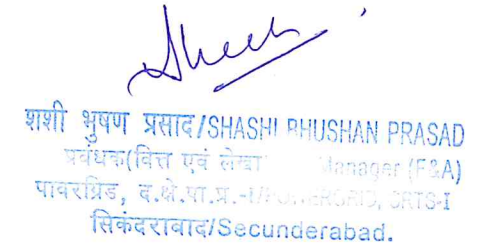 शशी भुषण प्रसाद/SHASHI BHUSHAN PRASAD
प्रबंधक(वित्त एवं लेखा Manager (F&A)
पावरग्रिड, द.क्षे.पा.प्र.-I/POWERGRID, SRTS-I
सिकंदराबाद/Secunderabad.